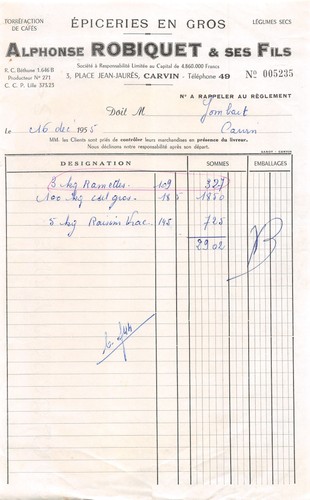 TORRÉFACTION DE CAFÉS
ÉPICERIES EN GROS
LÉGUMES SECS
ALPHONSE ROBIQUET & SES FILS
Société à Responsabilité Limitée au Capital de 4.860.000 Francs
R. C. Béthune 1.646 B
Producteur N° 271
C. C. P. Lille 375.25
3, PLACE JEAN-JAURÈS, CARVIN - Téléphone 49
N° 005235
N° A RAPPELER AU RÈGLEMENT
Doit M
Carvin
le 16 déc 1955
MM. les Clients sont priés de contrôler leurs marchandises en présence du livreur.
Nous déclinons notre responsabilité après son départ.
DESIGNATION SOMMES EMBALLAGES
3 kg Ramettes 109 327
100 kg sel gros 18.5 1850
5 kg Raisin Vrac 145 725
2902